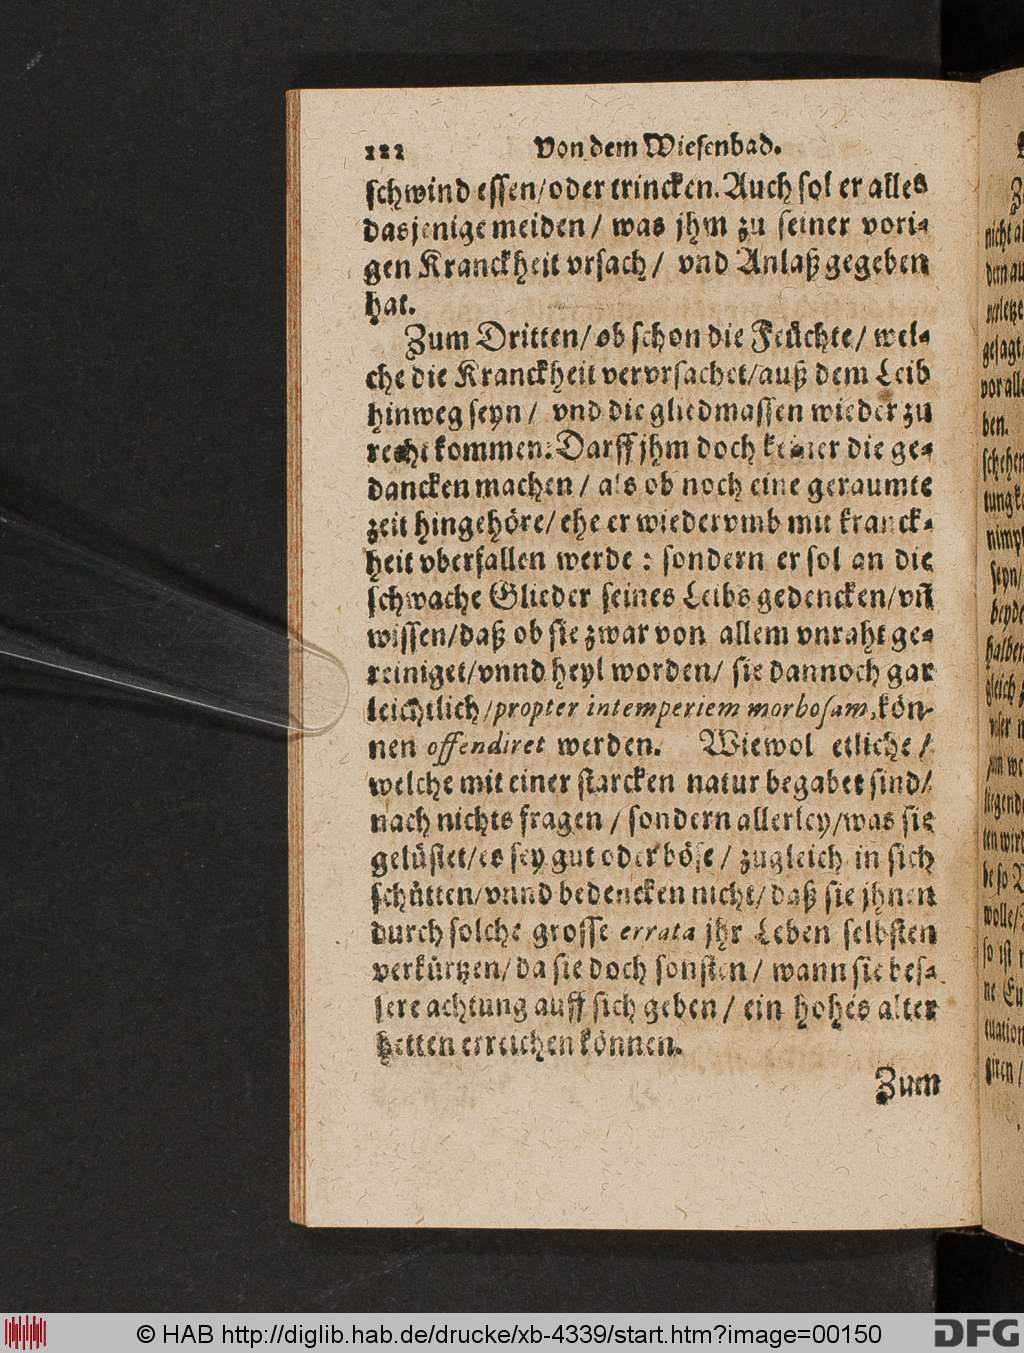 122 Von dem Wiesenbad.
schwind essen/oder trincken. Auch sol er alles
dasjenige meiden / was jhm zu seiner vori-
gen Kranckheit vrsach / vnd Anlaß gegeben
hat.
Zum Dritten/ ob schon die Feüchte / wel-
che die Kranckheit vervrsachet/auß dem Leib
hinweg seyn / vnd die gliedmassen wieder zu
recht kommen: Darff jhm doch keiner die ge-
dancken machen / als ob noch eine geraumte
zeit hingehöre/ ehe er wiedervmb mit kranck-
heit vberfallen werde : sondern er sol an die
schwache Glieder seines Leibs gedencken/vñ
wissen/daß ob sie zwar von allem vnraht ge-
reiniget/vnnd heyl worden/ sie dannoch gar
leichtlich/propter intemperiem morbosam, kön-
nen offendiret werden. Wiewol etliche /
welche mit einer starcken natur begabet sind/
nach nichts fragen / sondern allerley/was sie
gelüstet/es sey gut oder böse / zugleich in sich
schütten/vnnd bedencken nicht/ daß sie jhnen
durch solche grosse errata jhr Leben selbsten
verkürtzen/ da sie doch sonsten / wann sie bes-
sere achtung auff sich geben / ein hohes alter
hetten erreichen können.
Zum
© HAB http://diglib.hab.de/drucke/xb-4339/start.htm?image=00150
DFG